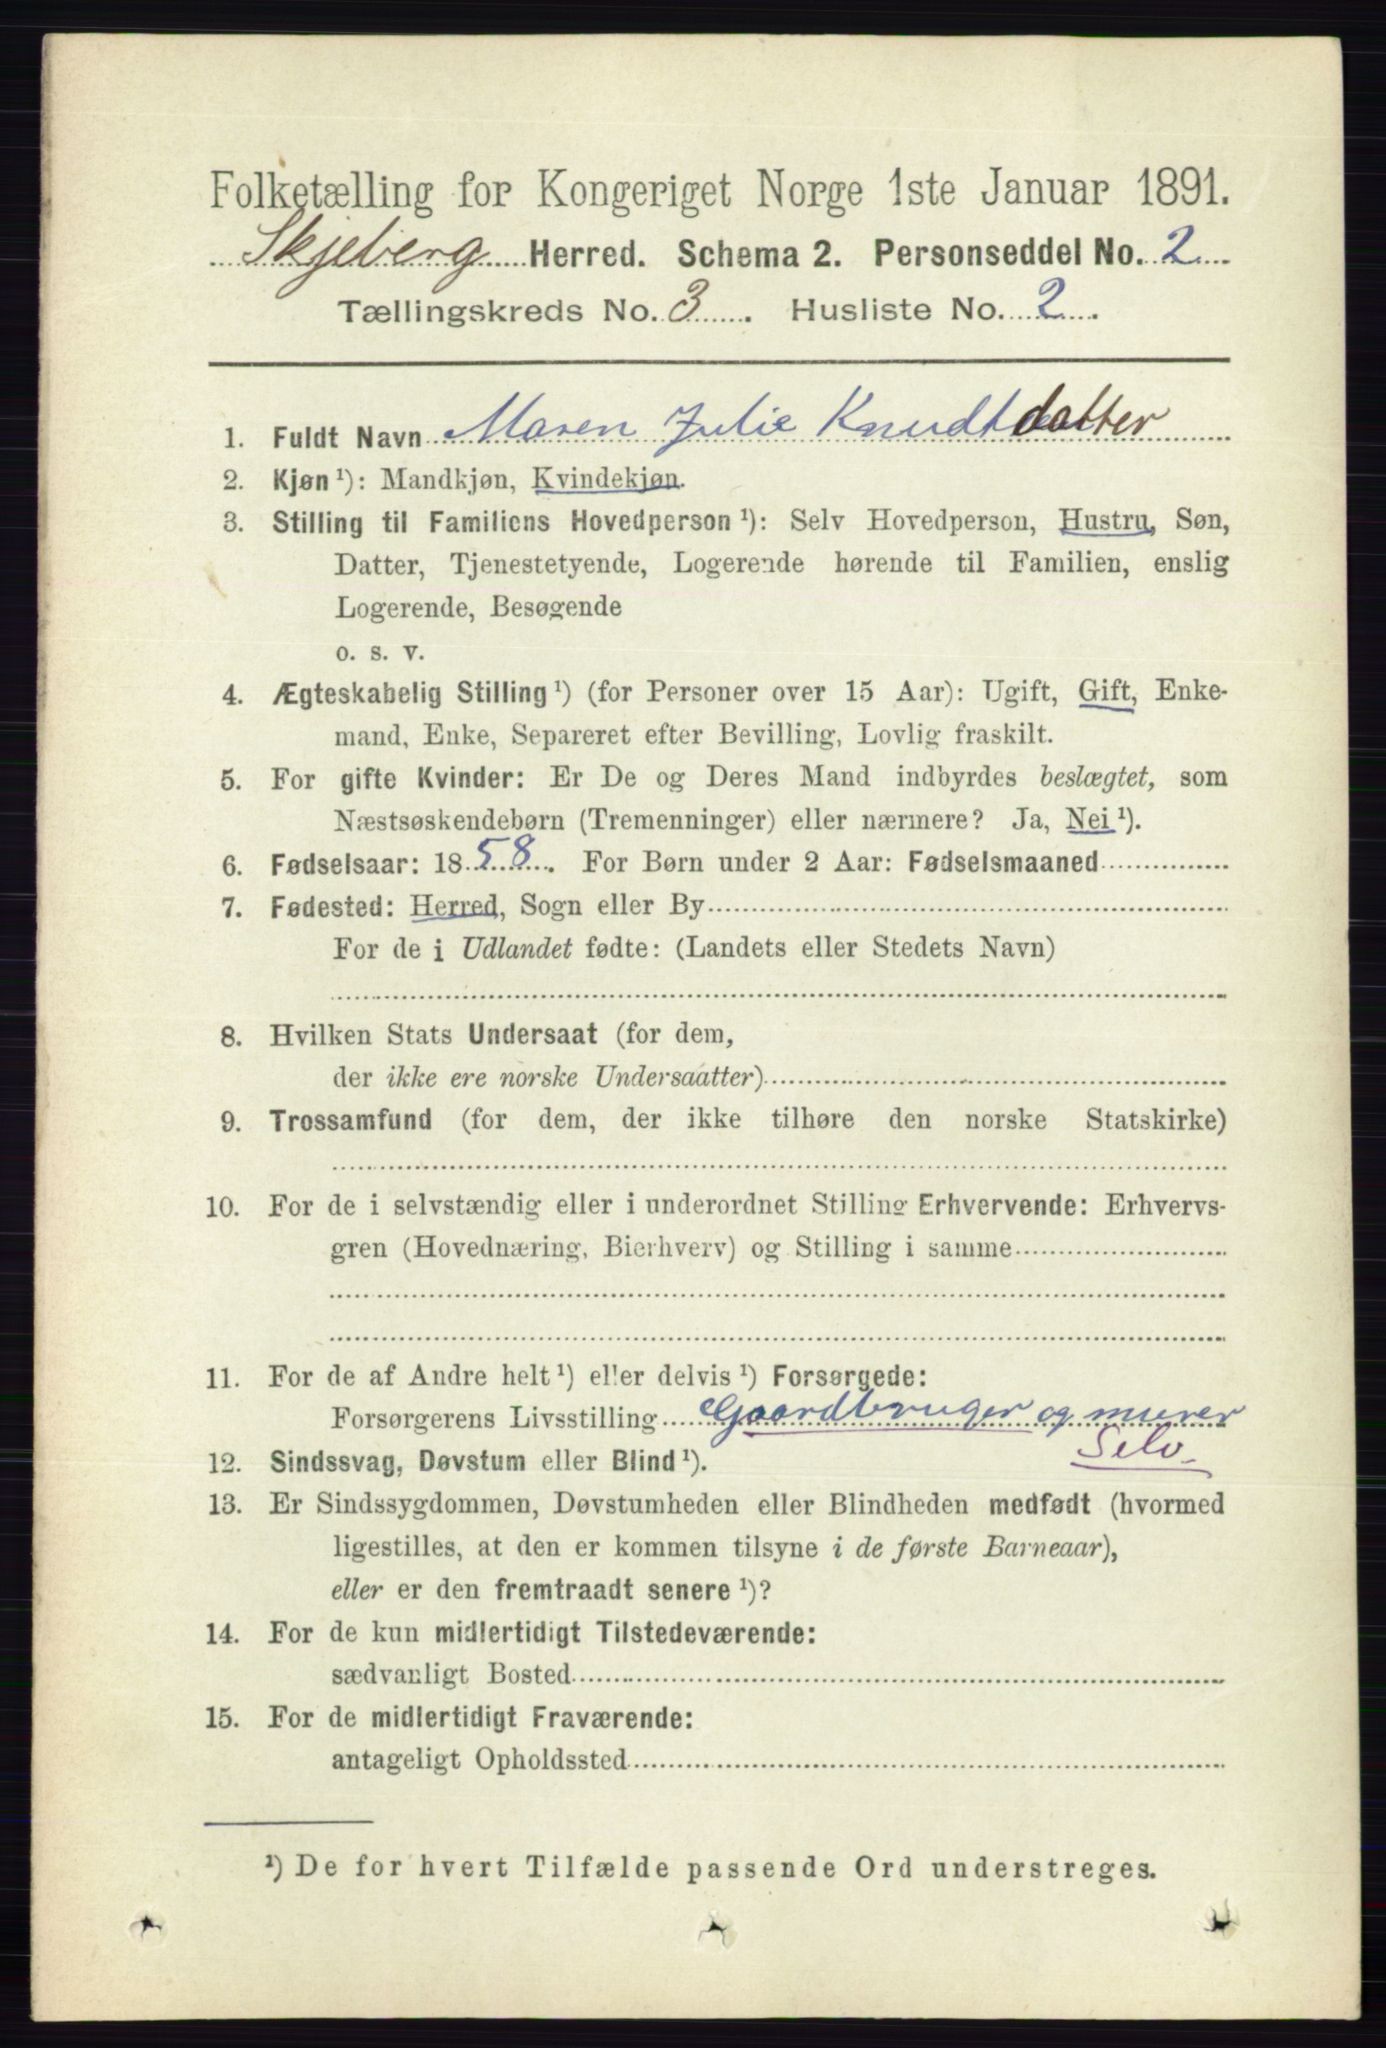 Folketælling for Kongeriget Norge 1ste Januar 1891.
Skjeberg Herred. Schema 2. Personseddel No. 2
Tællingskreds No. 3. Husliste No. 2.
1. Fuldt Navn Maren Julie Knudtdatter
2. Kjøn ¹): Mandkjøn, Kvindekjøn.
3. Stilling til Familiens Hovedperson ¹): Selv Hovedperson, Hustru, Søn,
Datter, Tjenestetyende, Logerende hørende til Familien, enslig
Logerende, Besøgende
o. s. v.
4. Ægteskabelig Stilling ¹) (for Personer over 15 Aar): Ugift, Gift, Enke-
mand, Enke, Separeret efter Bevilling, Lovlig fraskilt.
5. For gifte Kvinder: Er De og Deres Mand indbyrdes beslægtet, som
Næstsøskendebørn (Tremenninger) eller nærmere? Ja, Nei ¹).
6. Fødselsaar: 1858. For Børn under 2 Aar: Fødselsmaaned
7. Fødested: Herred, Sogn eller By
For de i Udlandet fødte: (Landets eller Stedets Navn)
8. Hvilken Stats Undersaat (for dem,
der ikke ere norske Undersaatter)
9. Trossamfund (for dem, der ikke tilhøre den norske Statskirke)
10. For de i selvstændig eller i underordnet Stilling Erhvervende: Erhvervs-
gren (Hovednæring, Bierhverv) og Stilling i samme
11. For de af Andre helt ¹) eller delvis ¹) Forsørgede:
Forsørgerens Livsstilling Gaardbruger og murer
12. Sindssvag, Døvstum eller Blind ¹). Selv
13. Er Sindssygdommen, Døvstumheden eller Blindheden medfødt (hvormed
ligestilles, at den er kommen tilsyne i de første Barneaar),
eller er den fremtraadt senere ¹)?
14. For de kun midlertidigt Tilstedeværende:
sædvanligt Bosted
15. For de midlertidigt Fraværende:
antageligt Opholdssted
¹) De for hvert Tilfælde passende Ord understreges.